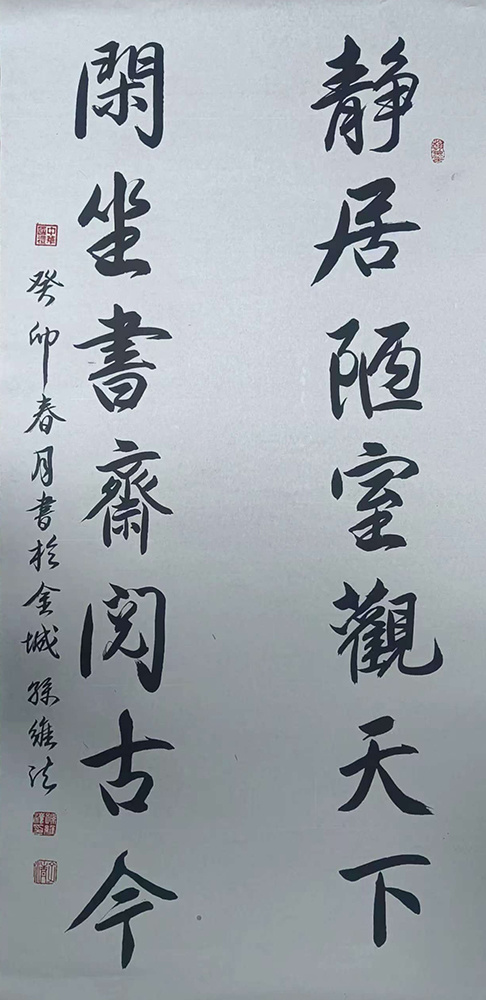 静居陋室觀天下
閑坐書齋閱古今
癸卯春月書於金城孫維法